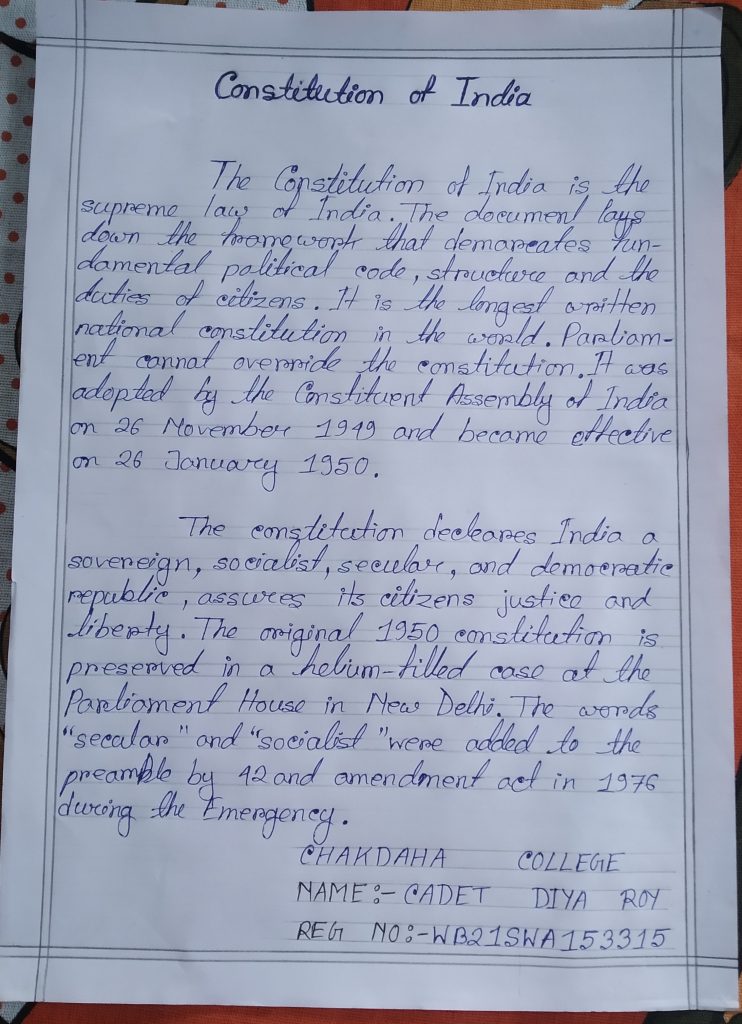 Constitution of India
The Constitution of India is the
supreme law of India. The document lays
down the framework that demarcates fun-
damental political code, structure and the
duties of citizens. It is the longest written
national constitution in the world. Parliam-
ent cannot override the constitution. It was
adopted by the Constituent Assembly of India
on 26 November 1949 and became effective
on 26 January 1950.
The constitution declares India a
sovereign, socialist, secular, and democratic
republic, assures its citizens justice and
liberty. The original 1950 constitution is
preserved in a helium-filled case at the
Parliament House in New Delhi. The words
"secular" and "socialist" were added to the
preamble by 42and amendment act in 1976
during the Emergency.
CHAKDAHA COLLEGE
NAME:- CADET DIYA ROY
REG NO:-WB21SWA153315